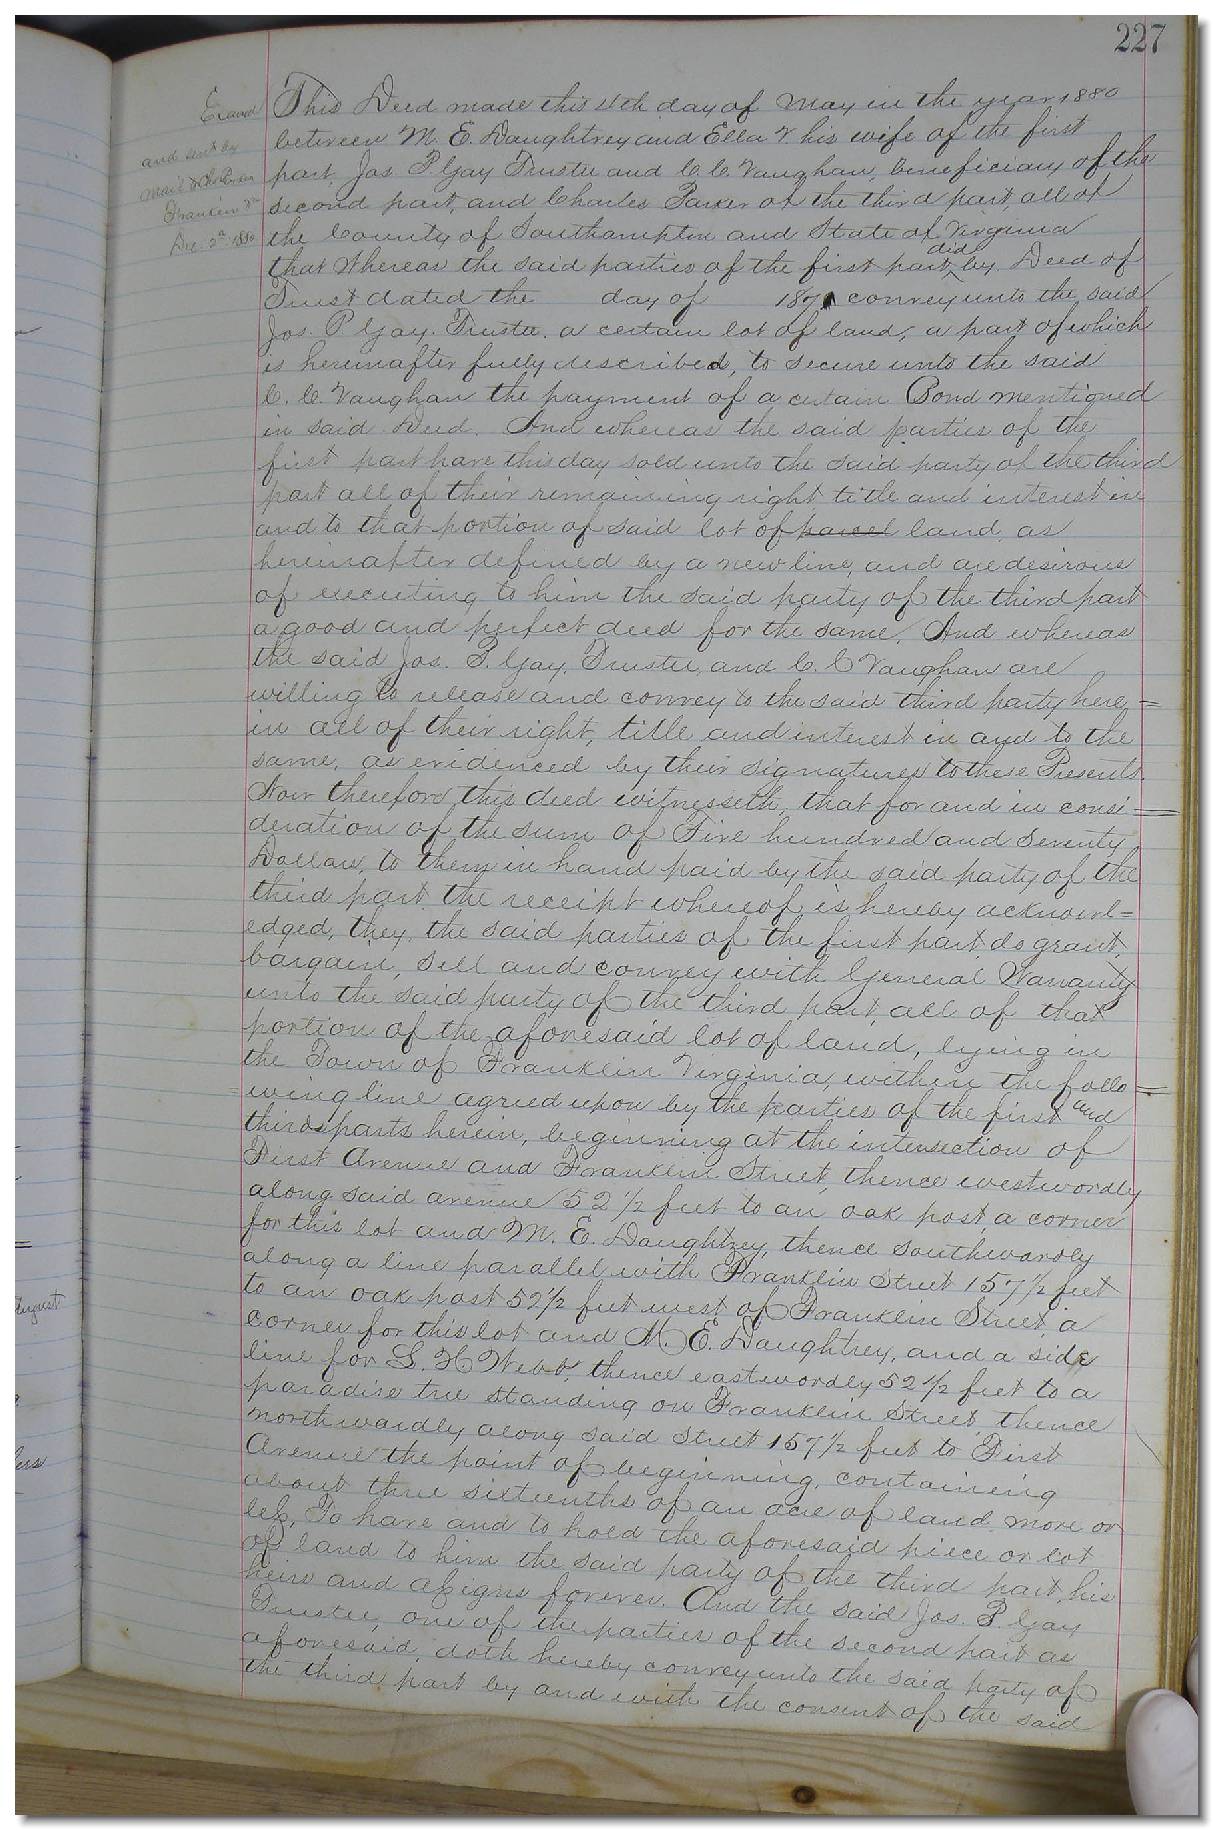 227
Exam'd
and sent by
mail to Chs Parker
Franklin Va
Dec 2d 1880
This Deed made this 4th day of May in the year 1880
between M. E. Daughtrey and Ella V. his wife of the first
part, Jos P. Gay Trustee and C. C. Vaughan, beneficiary of the
second part, and Charles Parker of the third part, all of
the County of Southampton and State of Virginia
that Whereas the said parties of the first part, did by Deed of
Trust dated the day of 187 convey unto the said
Jos. P Gay Trustee. a certain lot of land, a part of which
is hereinafter fully described, to secure unto the said
C. C. Vaughan the payment of a certain Bond mentioned
in said Deed. And whereas the said parties of the
first part have this day sold unto the said party of the third
part all of their remaining right title and interest in
and to that portion of said lot of parcel land, as
hereinafter defined by a new line, and are desirous
of executing to him the said party of the third part
a good and perfect deed for the same. And whereas
the said Jos. P. Gay, Trustee, and C. C Vaughan are
willing to release and convey to the said third party here=
in all of their right, title and interest in and to the
same, as evidenced by their signatures to these Presents.
Now therefore, this deed witnesseth, that for and in consi=
deration of the sum of Five hundred and Seventy
Dollars, to them in hand paid by the said party of the
third part the receipt whereof is hereby acknowl=
edged, they, the said parties of the first part, do grant,
bargain, sell and convey with General Warranty
unto the said party of the third part, all of that
portion of the aforesaid lot of land, lying in
the Town of Franklin Virginia, within the follo=
=wing line agreed upon by the parties of the first and
third parts herein, beginning at the intersection of
First Avenue and Franklin Street, thence westwordly
along said avenue 52 1/2 feet to an oak post, a corner
for this lot and M. E. Daughtrey, thence southwardly
along a line parallel with Franklin Street 157 1/2 feet
to an oak post 52 1/2 feet west of Franklin Street, a
corner for this lot and M. E. Daughtrey, and a side
line for L. H. Webb, thence eastwordly 52 1/2 feet to a
paradise tree standing on Franklin Street, thence
northwardly along said Street 157 1/2 feet to First
Avenue the point of beginning, containing
about three sixteenths of an acre of land more or
less, To have and to hold the aforesaid piece or lot
of land to him the said party of the third part, his
heirs and assigns forever. And the said Jos. P. Gay
Trustee, one of the parties of the second part as
aforesaid, doth hereby convey unto the said party of
the third part by and with the consent of the said
August